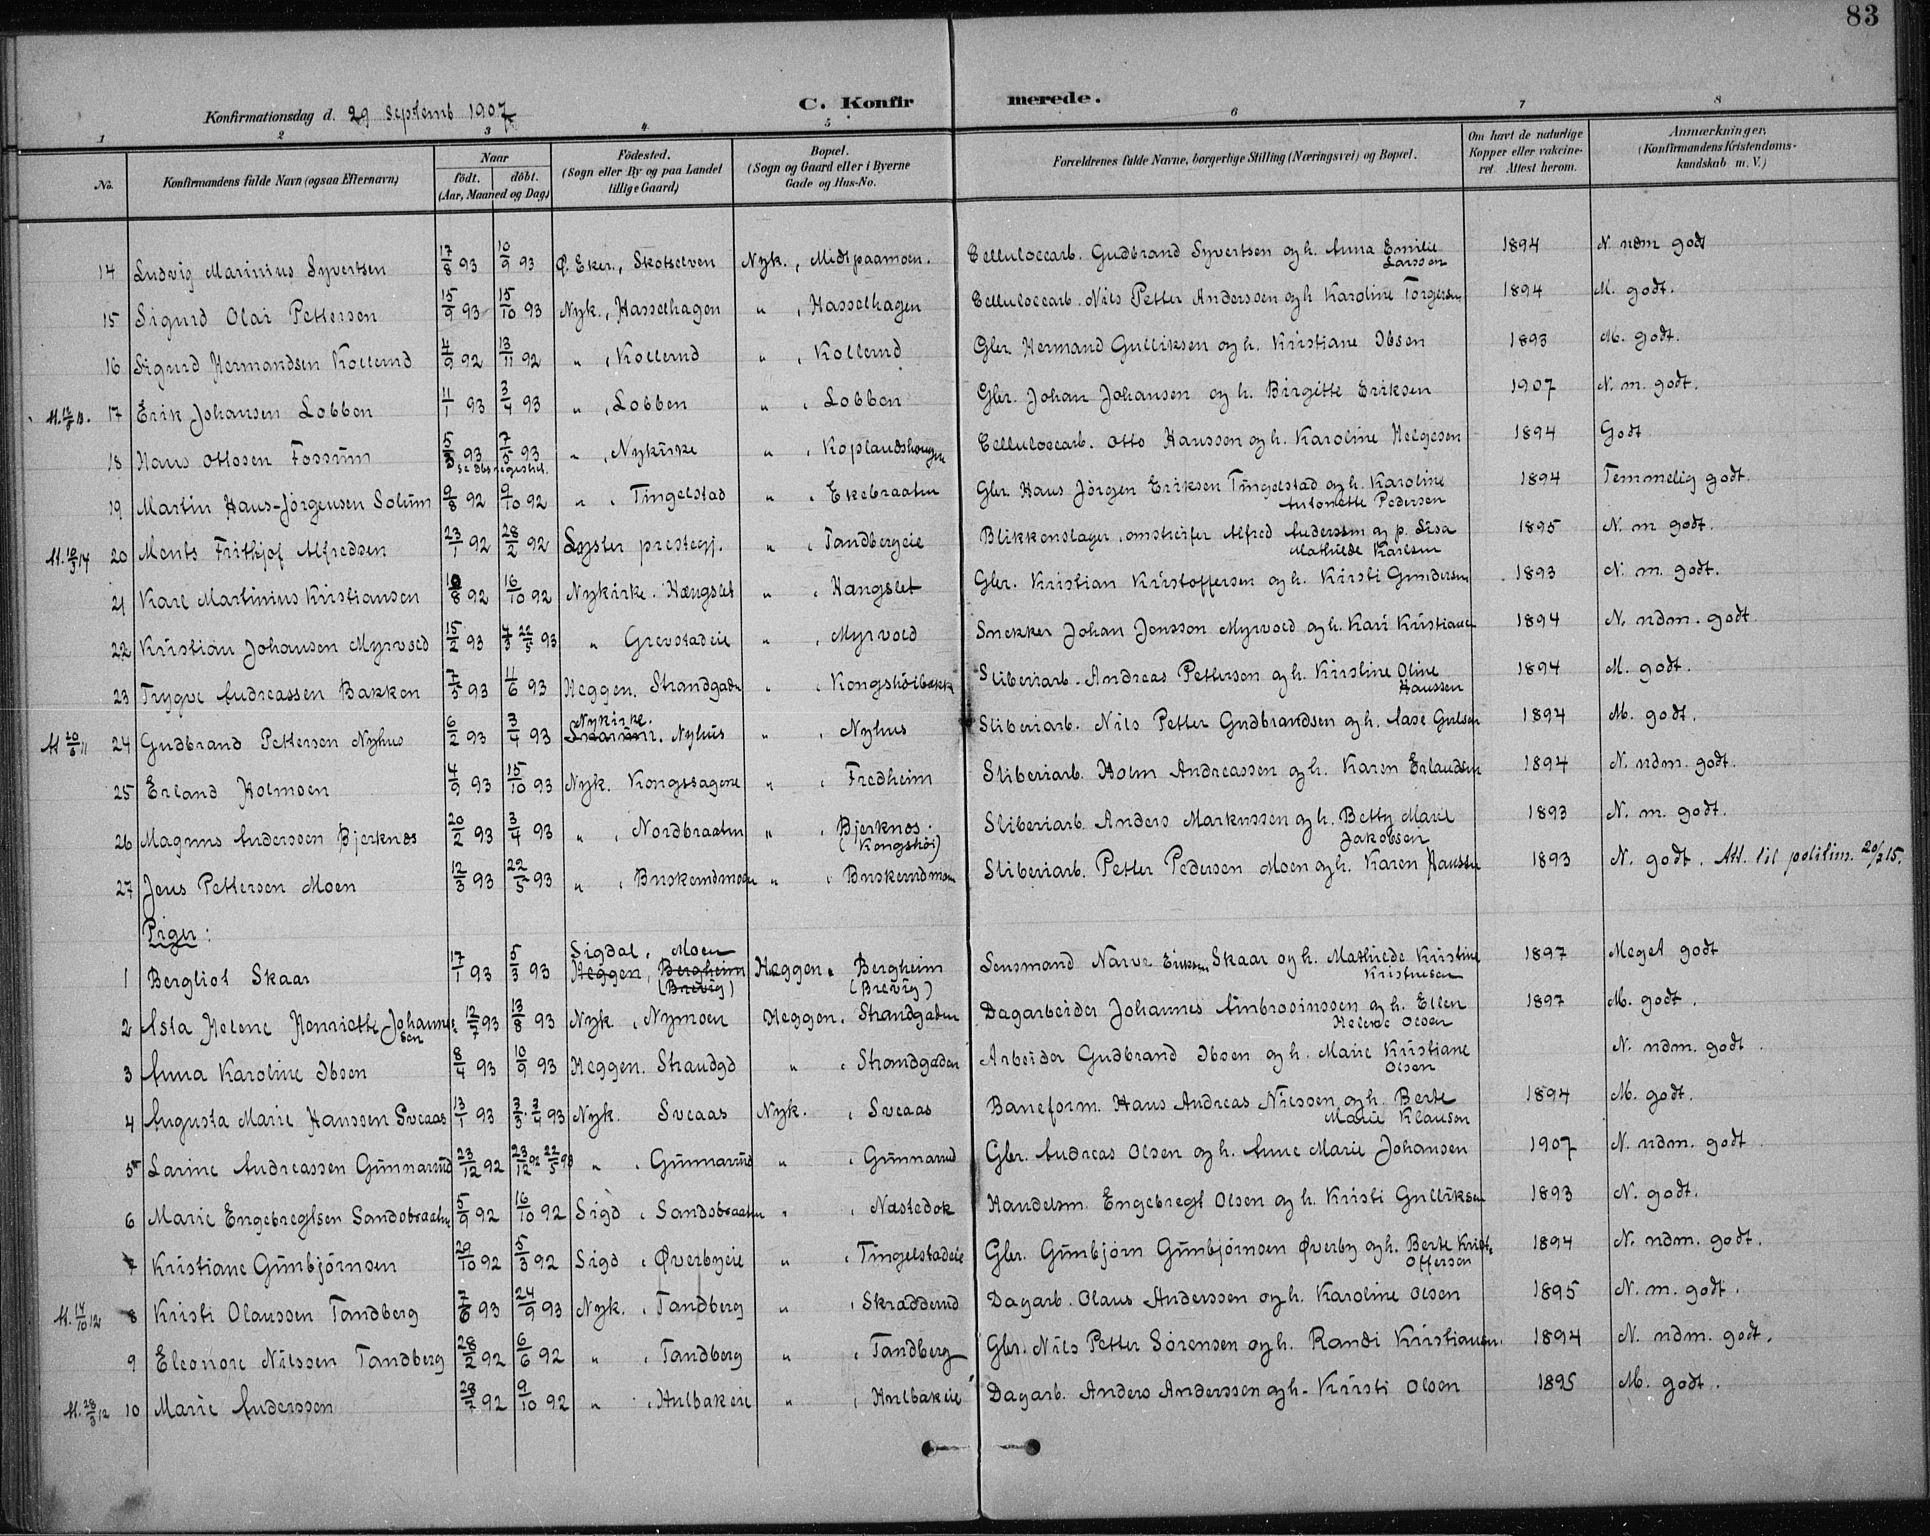 83
C. Konfirmerede.
Konfirmationsdag d. 29 Septemb 1907
1 2 3 4. 5 6 7 8
No. Konfirmandens fulde Navn (ogsaa Efternavn) Naar født. døbt. (Aar, Maaned og Dag) Fødested. (Sogn eller By og paa Landet tillige Gaard) Bopæl. (Sogn og Gaard eller i Byerne Gade og Hus-No. Forældrenes fulde Navne, borgerlige Stilling (Næringsvei) og Bopæl. Om havt de naturlige Kopper eller vakcineret. Attest herom. Anmærkninger. (Konfirmandens Kristendomskundskab m. V.)
14 Ludvig Marinius Syvertsen 17/8 93 10/9 93 Ø. Eker., Skotselven Nyk., Midtpaamoen. Cellulosearb. Gudbrand Syvertsen og h. Anna Emilie Larssen 1894 N. ndm godt
15 Sigurd Olai Pettersen 15/9 93 15/10 93 Nyk., Hasselhagen " , Hasselhagen Cellulosearb. Nils Petter Anderssen og h Karoline Torgersen 1894 M. godt.
16 Sigurd Hermandsen Kollerud 4/9 92 13/11 92 " , Kollerud " , Kollerud Gbr. Hermand Gulliksen og h. Kristiane Ibsen 1893 M. godt.
17 Erik Johansen Lobben 11/1 93 3/4 93 " , Lobben " , Lobben Gbr. Johan Johansen og h. Birgitte Eriksen 1907 N. m. godt.
18 Hans Ottosen Fossum 93 7/5 93 " , Nykirke " , Koplandshaugen Cellulosearb. Otto Hanssen og h. Karoline Helgesen 1894 Godt
19 Martin Hans-Jørgensen Solum 9/8 92 9/10 92 " , Tingelstad " , Ekebraaten Gbr. Hans Jørgen Eriksen Tingelstad og h. Karoline Antonette Pedersen 1894 Temmelig godt.
M. 10/3 14 20 Ments Frithjof Alfredsen 23/1 92 28/2 92 Lyster prestegj. " , Tandbergeie Blikkenslager, omstreifer Alfred Anderssen og p. Lisa Mathilde Karlsen 1895 N. m godt.
21 Karl Martinius Kristiansen 10/8 92 16/10 92 Nykirke. Hængslet " , Hængslet Gbr. Kristian Kristoffersen og h. Kirsti Gundersen 1893 N. m. godt.
22 Kristian Johansen Myrvold 15/2 93 4/3 22/5 93 " Grevstadeie " , Myrvold Snekker Johan Jensson Myrvold og h. Kari Kristiane 1894 N. ndm. godt.
23 Trygve Andreassen Bakken 7/5 93 11/6 93 Heggen. Strandgaden " , Kongshøibakk Sliberiarb. Andreas Pettersen og h. Kirstine Oline Hanssen 1894 M. godt.
M 20/6 11 24 Gudbrand Pettersen Nyhus 6/2 93 3/4 93 Nykirke. Nyhus " , Nyhus Sliberiarb. Nils Petter Gudbrandsen og h. Aase Gulsen 1894 M. godt.
25 Erland Holmsen 4/9 93 15/10 93 Nyk. Kongssagene " , Fredheim Sliberiarb. Holm Andreassen og h. Karen Erlandsen 1894 N. ndm. godt.
26 Magnus Anderssen Bjerknes 20/2 93 3/4 93 " , Nordbraaten " , Bjerknes. (Kongshøi) Sliberiarb. Anders Markussen og h. Betty Marie Jakobsen 1893 N. m. godt.
27 Jens Pettersen Moen 12/3 93 22/5 93 " , Buskerudmoen " , Buskerudmoen Sliberiarb. Petter Pedersen Moen og h. Karen Hanssen 1893 N. godt. Att. til politim. 20/2 15.
Piger:
1 Bergliot Skaar 17/1 93 5/3 93 Sigdal, Moen Heggen, Bergheim (Brevig) Heggen, Bergheim (Brevig) Lensmand Narve Eriksen Skaar og h. Mathilde Kristine Kristensen 1897 Meget godt
2 Asta Helene Henriette Johannessen 12/7 93 13/8 93 Nyk. , Nymoen Heggen. Strandgaden Dagarbeider Johannes Ambrosiussen og h. Ellen Helene Olsen 1897 M. godt.
3 Anna Karoline Ibsen 8/4 93 10/9 93 Heggen. Strandgd " , Strandgaden Arbeider Gudbrand Ibsen og h. Marie Kristiane Olsen N. ndm. godt.
4 Augusta Marie Hanssen Sveaas 13/1 93 3/3. 3/4 93 Nyk. Sveaas Nyk. , Sveaas Baneform. Hans Andreas Nilssen og h. Berte Marie Klausen 1894 M. godt.
5 Larine Andreassen Gunnarud 23/12 92 23/12 92 22/5 93 " , Gunnarud " , Gunnarud Gbr. Andreas Olsen og h. Anne Marie Johansen 1907 N. ndm. godt.
6 Marie Engebregtsen Sandsbraaten 5/9 92 16/10 92 Sigd , Sandsbraaten " , Næstedok Handelsm. Engebregt Olsen og h. Kristi Gulliksen 1893 N. godt.
7 Kristiane Gunbjørnsen 20/10 92 5/3 92 Sigd , Øverbyeie " , Tingelstadeie Gbr. Gunbjørn Gunbjørnsen Øverby og h. Berte Kristoffersen 1894 N. ndm. godt.
M. 14/10 12 8 Kristi Olaussen Tandberg 7/6 93 24/9 93 Nyk. , Tandberg " , Skradderud Dagarb. Olaus Anderssen og h. Karoline Olsen 1895 N. m. godt.
9 Eleonore Nilssen Tandberg 28/2 92 6/6 92 " , Tandberg " , Tandberg Gbr. Nils Petter Sørensen og h. Randi Kristiansen. 1894 N. ndm. godt.
M. 28/3 12 10 Marie Anderssen 92 9/10 92 " , Hulbakeie " , Hulbakeie Dagarb. Anders Anderssen og h. Kirsti Olsen 1895 M. godt.